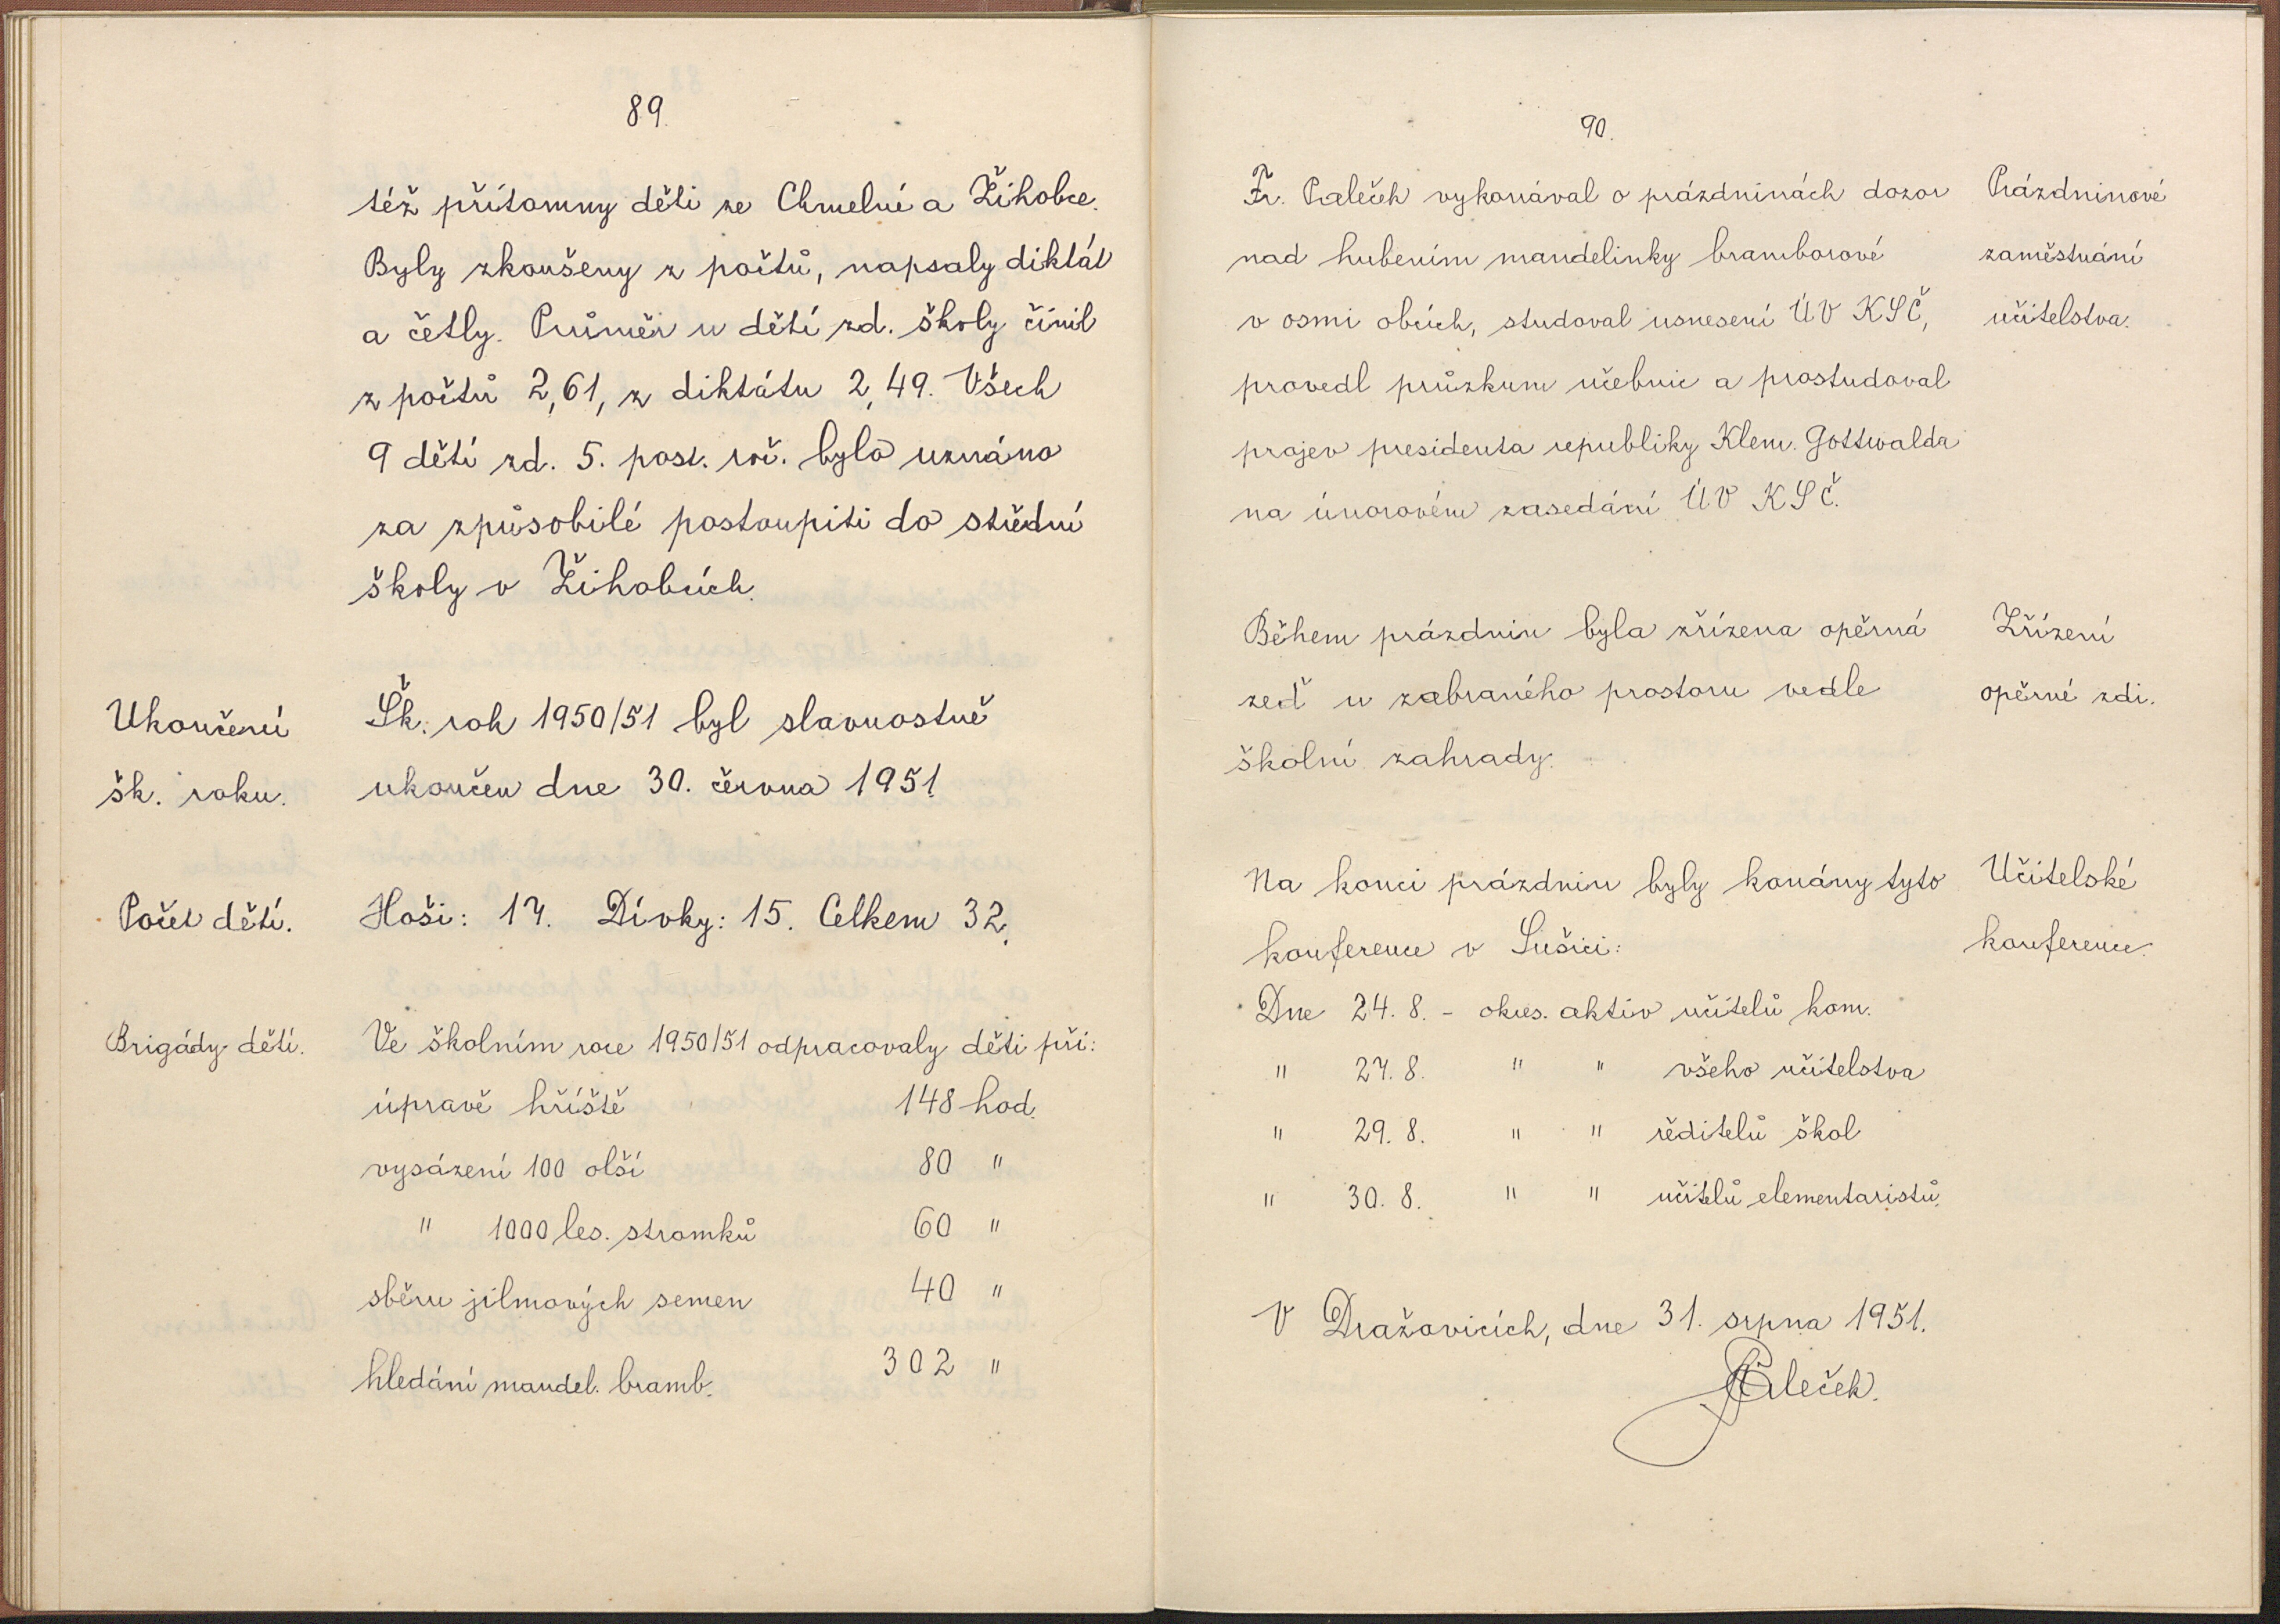 89.
též přítomny děti ze Chmelné a Žihobce.
Byly zkoušeny z počtů, napsaly diktát
a četly. Průměr u dětí zd. školy činil
z počtů 2,61, z diktátu 2,49. Všech
9 dětí zd. 5. post. roč. bylo uznáno
za způsobilé postoupiti do střední
školy v Žihobcích.
Ukončení
šk. roku.
Šk. rok 1950/51 byl slavnostně
ukončen dne 30. června 1951.
Počet dětí.
Hoši: 17. Dívky: 15. Celkem 32.
Brigády dětí.
Ve školním roce 1950/51 odpracovaly děti při:
úpravě hříště 148 hod.
vysázení 100 olší 80 "
" 1000 les. stromků 60 "
sběru jilmových semen 40 "
hledání mandel. bramb. 302 "
90.
Fr. Paleček vykonával o prázdninách dozor
nad hubením mandelinky bramborové
v osmi obcích, studoval usnesení ÚV KSČ,
provedl průzkum učebnic a prostudoval
projev presidenta republiky Klem. Gottwalda
na únorovém zasedání ÚV KSČ.
Prázdninové
zaměstnání
učitelstva.
Během prázdnin byla zřízena opěrná
zeď u zabraného prostoru vedle
školní zahrady.
Zřízení
opěrné zdi.
Na konci prázdnin byly konány tyto
konference v Sušici:
Učitelské
konference.
Dne 24. 8. - okres. aktiv učitelů kom.
" 27. 8. " " všeho učitelstva
" 29. 8. " " ředitelů škol
" 30. 8. " " učitelů elementaristů.
V Dražovicích, dne 31. srpna 1951.
Paleček.